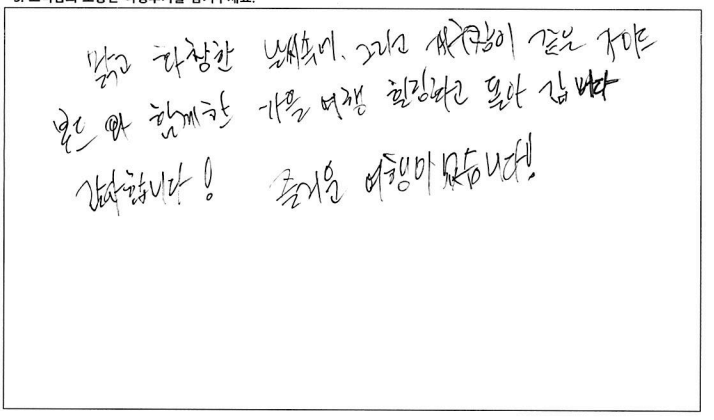 맑고 화창한 날씨속에. 그리고 같은 가이드
분 와 함께한 가을 여행 힐링하고 돌아 갑니다
감사합니다! 즐거운 여행이였습니다!